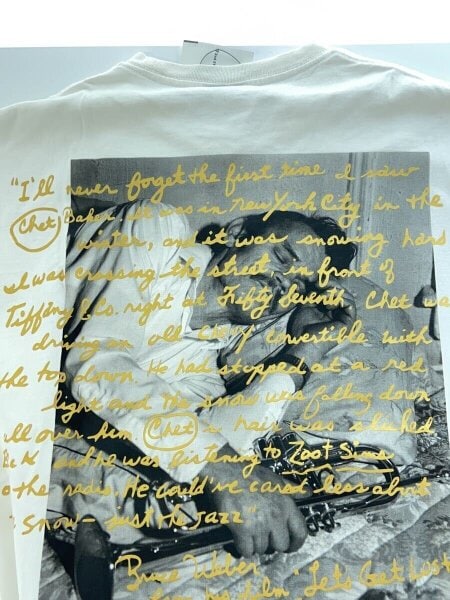 "I'll never forget the first time I saw
Chet Baker. It was in New York City in the
winter, and it was snowing hard
I was crossing the street, in front of
Tiffany & Co. right at Fifty Seventh Chet was
driving an old Chevy convertible with
the top down. He had stopped at a red
light and the snow was falling down
all over him Chet's hair was slicked
back and he was listening to Zoot Sims
on the radio. He could've cared less about
snow - just the Jazz"
Bruce Weber
his film "Let's Get Lost